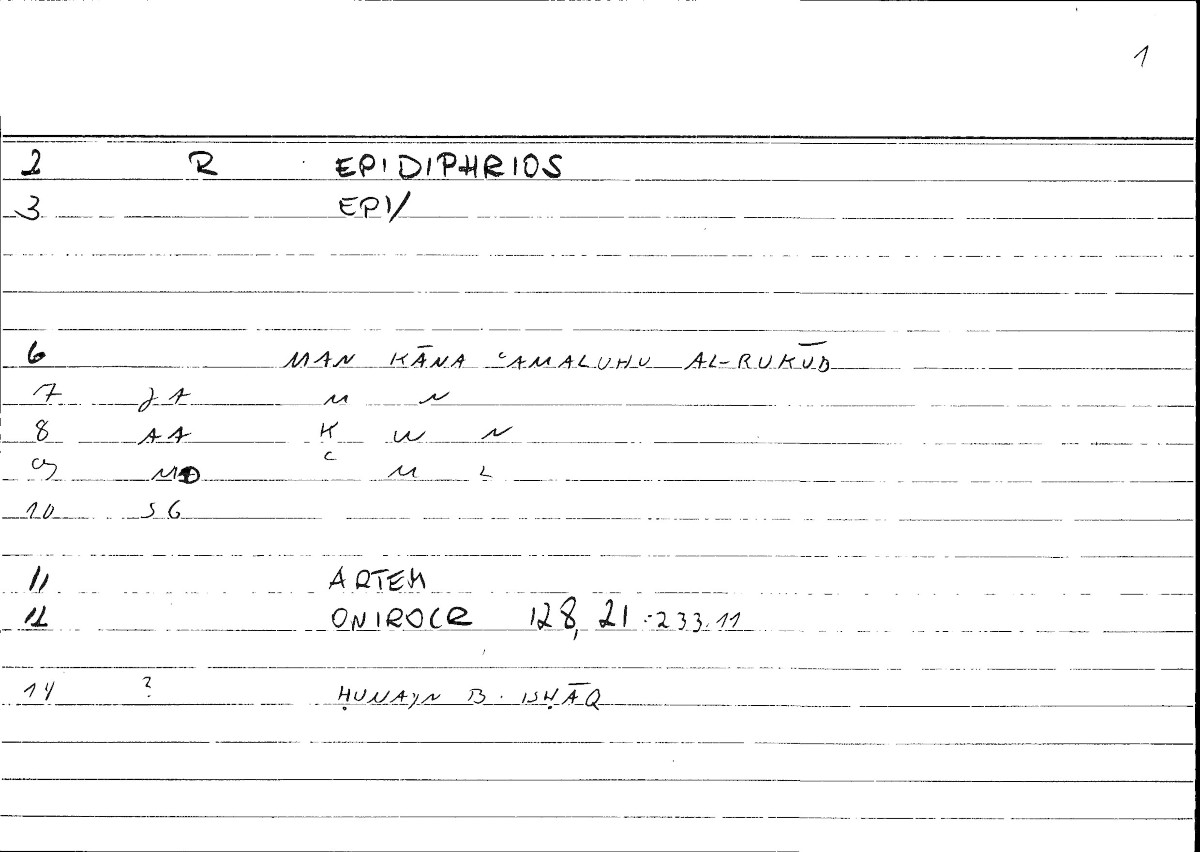 1
2 R EPIDIPHRIOS
3 EPI/
6 MAN KĀNA ʿAMALUHU AL-RUKŪB
7 JA M N
8 AA K W N
9 ʿ M L
10 SG
11 ARTEM
12 ONIROCR 128, 21 - 233.11
14 ? ḤUNAYN B. ISḤĀQ